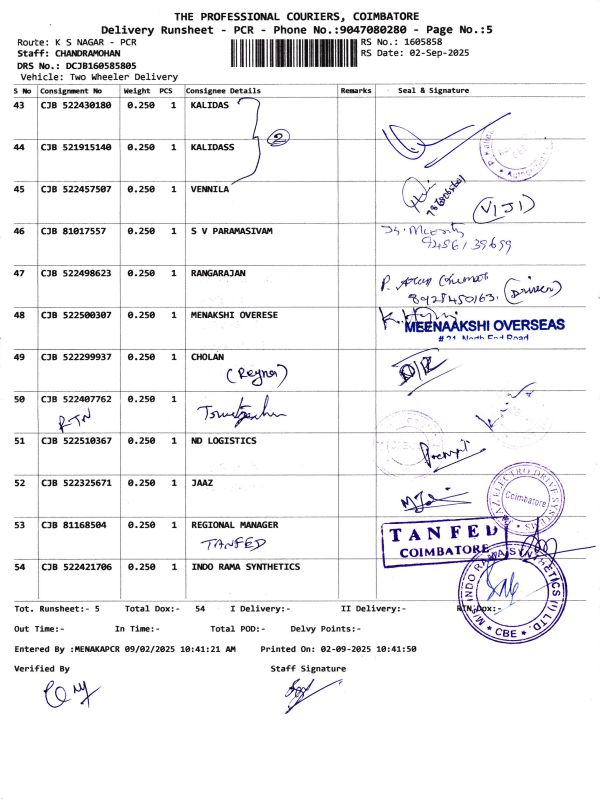 THE PROFESSIONAL COURIERS, COIMBATORE
Delivery Runsheet - PCR - Phone No.:9047080280 - Page No.:5
Route: K S NAGAR - PCR RS No.: 1605858
Staff: CHANDRAMOHAN RS Date: 02-Sep-2025
DRS No.: DCJB160585805
Vehicle: Two Wheeler Delivery
S No Consignment No Weight PCS Consignee Details Remarks Seal & Signature
43 CJB 522430180 0.250 1 KALIDAS
2
44 CJB 521915140 0.250 1 KALIDASS
45 CJB 522457507 0.250 1 VENNILA
(VIJI)
46 CJB 81017557 0.250 1 S V PARAMASIVAM
9486139699
47 CJB 522498623 0.250 1 RANGARAJAN
P.
8928450163. (Driver)
48 CJB 522500307 0.250 1 MENAKSHI OVERESE
MEENAAKSHI OVERSEAS
# 21, North End Road
49 CJB 522299937 0.250 1 CHOLAN
(Reyna) D/L
50 CJB 522407762 0.250 1
RTN
51 CJB 522510367 0.250 1 ND LOGISTICS
52 CJB 522325671 0.250 1 JAAZ
Coimbatore
53 CJB 81168504 0.250 1 REGIONAL MANAGER
TANFED
TANFED
COIMBATORE
54 CJB 522421706 0.250 1 INDO RAMA SYNTHETICS
M/S INDO RAMA SYNTHETICS (I) LTD.
* CBE *
Tot. Runsheet:- 5 Total Dox:- 54 I Delivery:- II Delivery:- RTN Dox:-
Out Time:- In Time:- Total POD:- Delvy Points:-
Entered By :MENAKAPCR 09/02/2025 10:41:21 AM Printed On: 02-09-2025 10:41:50
Verified By Staff Signature